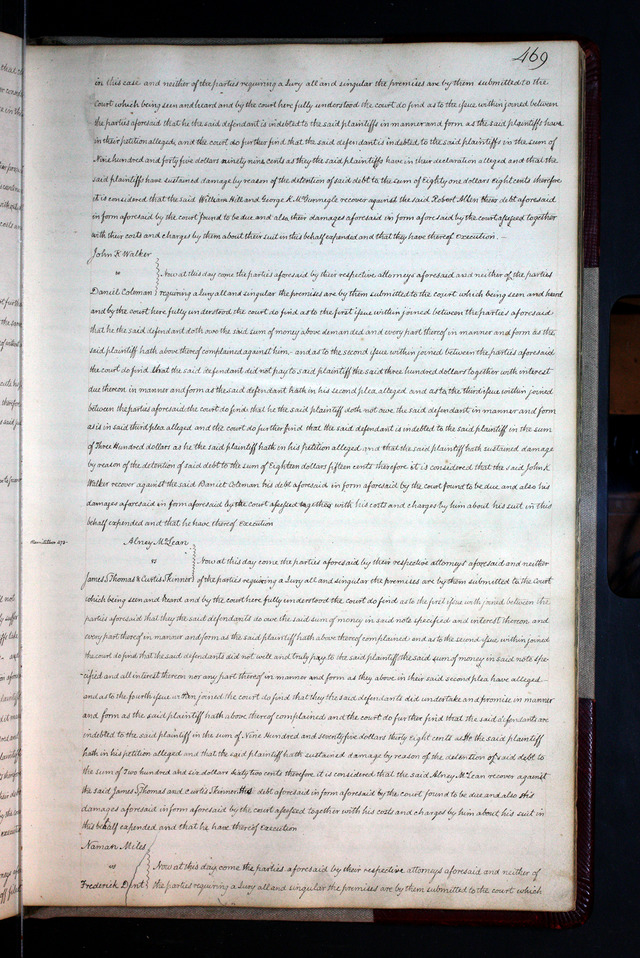 469
in this case and neither of the parties requiring a Jury all and singular the premises are by them submitted to the
Court which being seen and heard and by the court here fully understood the court do find as to the issue within joined between
the parties aforesaid that he the said defendant is indebted to the said plaintiffs in manner and form as the said plaintiffs have
in their petition alleged, and the court do further find that the said defendant is indebted to the said plaintiffs in the sum of
Nine hundred and forty five dollars ninety nine cents as they the said plaintiffs have in their declaration alleged and that the
said plaintiffs have sustained damage by reason of the detention of said debt to the sum of Eighty one dollars Eight cents therefore
it is considered that the said William Hill and George K McGunnegle recover against the said Robert Allen their debt aforesaid
in form aforesaid by the court found to be due and also their damages aforesaid in form aforesaid by the court assessed together
with their costs and charges by them about their suit in this behalf expended and that they have thereof execution. —
John K Walker
vs
Now at this day come the parties aforesaid by their respective attorneys aforesaid and neither of the parties
Daniel Coleman requiring a Jury all and singular the premises are by them submitted to the court which being seen and heard
and by the court here fully understood the court do find as to the first issue within joined between the parties aforesaid
that he the said defendant doth owe the said sum of money above demanded and every part thereof in manner and form as the
said plaintiff hath above thereof complained against him,- and as to the second issue within joined between the parties aforesaid
the court do find that the said defendant did not pay to said plaintiff the said three hundred dollars together with interest
due thereon in manner and form as the said defendant hath in his second plea alleged and as to the third issue within joined
between the parties aforesaid the court do find that he the said plaintiff doth not owe the said defendant in manner and form
as is in said third plea alleged and the court do further find that the said defendant is indebted to the said plaintiff in the sum
of Three Hundred dollars as he the said plaintiff hath in his petition alleged and that the said plaintiff hath sustained damage
by reason of the detention of said debt to the sum of Eighteen dollars fifteen cents therefore it is considered that the said John K
Walker recover against the said Daniel Coleman his debt aforesaid in form aforesaid by the court found to be due and also his
damages aforesaid in form aforesaid by the court assessed together with his costs and charges by him about his suit in this
behalf expended and that he have thereof Execution
Alney McLean
vs
Now at this day come the parties aforesaid by their respective attorneys aforesaid and neither
James S Thomas & Curtis Skinner of the parties requiring a Jury all and singular the premises are by them submitted to the Court
which being seen and heard and by the court here fully understood the court do find as to the first issue with joined between the
parties aforesaid that they the said defendants do owe the said sum of money in said note specified and interest thereon and
every part thereof in manner and form as the said plaintiff hath above thereof complained and as to the second issue within joined
the court do find that the said defendants did not well and truly pay to the said plaintiff the said sum of money in said note spe-
cified and all interest thereon nor any part thereof in manner and form as they above in their said second plea have alleged
and as to the fourth issue within joined the court do find that they the said defendants did undertake and promise in manner
and form as the said plaintiff hath above thereof complained and the court do further find that the said defendants are
indebted to the said plaintiff in the sum of Nine Hundred and seventy five dollars thirty Eight cents as the said plaintiff
hath in his petition alleged and that the said plaintiff hath sustained damage by reason of the detention of said debt to
the sum of two hundred and six dollars sixty two cents therefore it is considered that the said Alney McLean recover against
the said James S Thomas and Curtis Skinner his debt aforesaid in form aforesaid by the court found to be due and also his
damages aforesaid in form aforesaid by the court assessed together with his costs and charges by him about his suit in
this behalf expended and that he have thereof Execution
Naman Miles
vs
Now at this day come the parties aforesaid by their respective attorneys aforesaid and neither of
Frederick Dent the parties requiring a Jury all and singular the premises are by them submitted to the court which